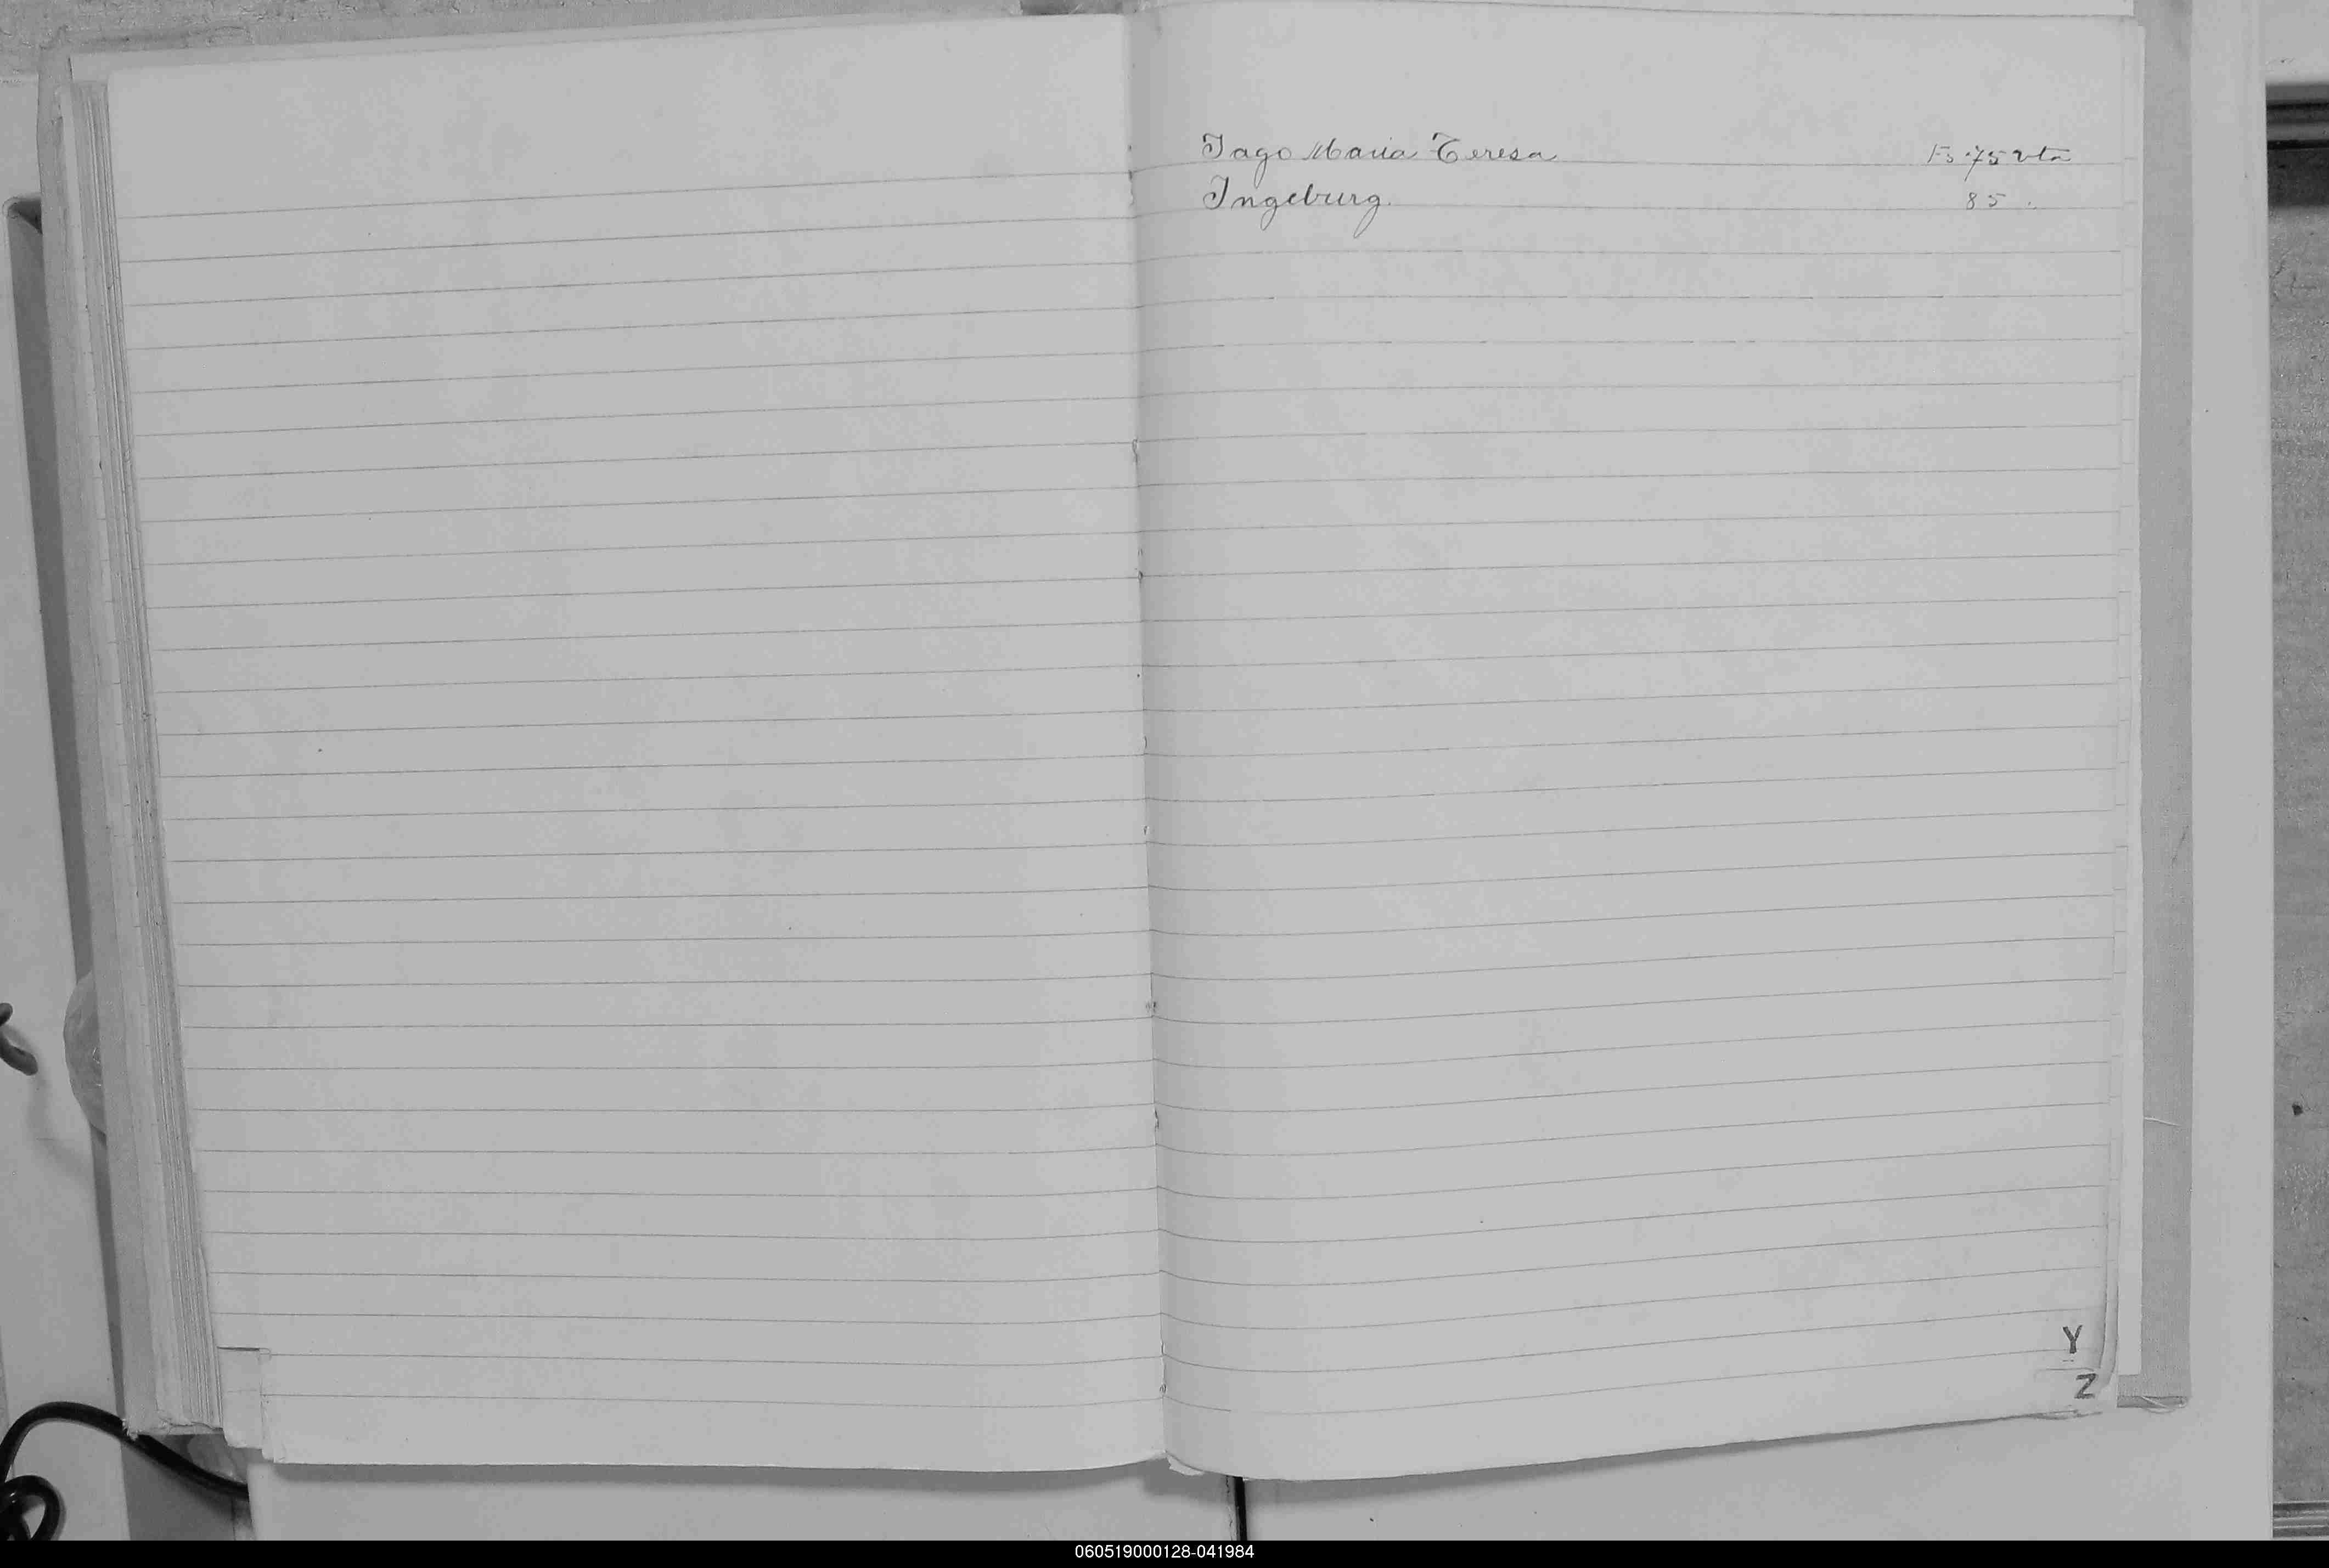 Iago Maria Teresa Fs. 75 vta
Ingeburg. 85.
Y
Z
060519000128-041984